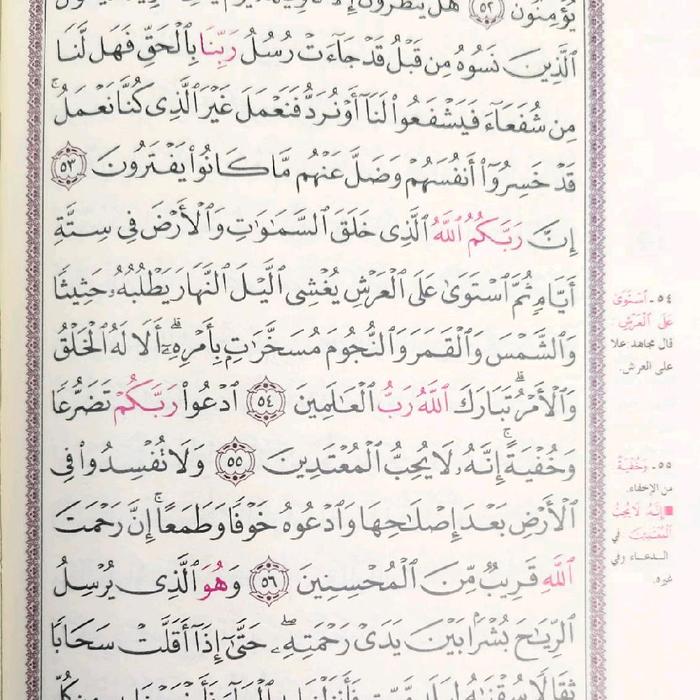 يُؤْمِنُونَ ٥٢ هَلْ يَنظُرُونَ
ٱلَّذِينَ نَسُوهُ مِن قَبْلُ قَدْ جَآءَتْ رُسُلُ رَبِّنَا بِٱلْحَقِّ فَهَل لَّنَا
مِن شُفَعَآءَ فَيَشْفَعُوا۟ لَنَآ أَوْ نُرَدُّ فَنَعْمَلَ غَيْرَ ٱلَّذِى كُنَّا نَعْمَلُ ۚ
قَدْ خَسِرُوٓا۟ أَنفُسَهُمْ وَضَلَّ عَنْهُم مَّا كَانُوا۟ يَفْتَرُونَ ٥٣
إِنَّ رَبَّكُمُ ٱللَّهُ ٱلَّذِى خَلَقَ ٱلسَّمَٰوَٰتِ وَٱلْأَرْضَ فِى سِتَّةِ
أَيَّامٍ ثُمَّ ٱسْتَوَىٰ عَلَى ٱلْعَرْشِ يُغْشِى ٱلَّيْلَ ٱلنَّهَارَ يَطْلُبُهُۥ حَثِيثًا
وَٱلشَّمْسَ وَٱلْقَمَرَ وَٱلنُّجُومَ مُسَخَّرَٰتٍۭ بِأَمْرِهِۦٓ ۗ أَلَا لَهُ ٱلْخَلْقُ
وَٱلْأَمْرُ ۗ تَبَارَكَ ٱللَّهُ رَبُّ ٱلْعَٰلَمِينَ ٥٤ ٱدْعُوا۟ رَبَّكُمْ تَضَرُّعًا
وَخُفْيَةً ۚ إِنَّهُۥ لَا يُحِبُّ ٱلْمُعْتَدِينَ ٥٥ وَلَا تُفْسِدُوا۟ فِى
ٱلْأَرْضِ بَعْدَ إِصْلَٰحِهَا وَٱدْعُوهُ خَوْفًا وَطَمَعًا ۚ إِنَّ رَحْمَتَ
ٱللَّهِ قَرِيبٌ مِّنَ ٱلْمُحْسِنِينَ ٥٦ وَهُوَ ٱلَّذِى يُرْسِلُ
ٱلرِّيَٰحَ بُشْرًۢا بَيْنَ يَدَىْ رَحْمَتِهِۦ ۖ حَتَّىٰٓ إِذَآ أَقَلَّتْ سَحَابًا
ثِقَالًا سُقْنَٰهُ لِبَلَدٍ
٥٤ـ ٱسْتَوَىٰ
عَلَى ٱلْعَرْشِ
قال مجاهد علا
على العرش.
٥٥ـ وَخُفْيَةً
من الإخفاء.
إِنَّهُۥ لَا يُحِبُّ
ٱلْمُعْتَدِينَ في
الدعاء وفي
غيره.